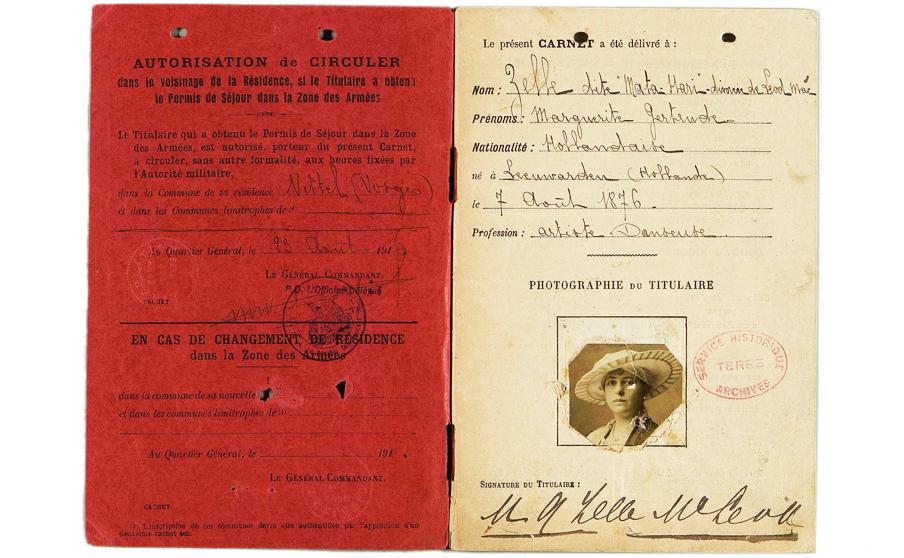 AUTORISATION de CIRCULER
dans le voisinage de la Résidence, si le Titulaire a obtenu
le Permis de Séjour dans la Zone des Armées
Le Titulaire qui a obtenu le Permis de Séjour dans la Zone
des Armées, est autorisé, porteur du présent Carnet,
à circuler, sans autre formalité, aux heures fixées par
l'Autorité militaire,
dans la Commune de sa résidence Vittel (Vosges)
et dans les Communes limitrophes de
Au Quartier Général, le Août 191
Le Général Commandant.
P.O. L'Officier Délégué
CACHET
EN CAS DE CHANGEMENT DE RÉSIDENCE
dans la Zone des Armées
dans la commune de sa nouvelle
et dans les communes limitrophes de
Au Quartier Général, le 191
Le Général Commandant.
CACHET
(1) L'inscription de ces communes devra être authentifiée par l'apposition d'un
deuxième cachet sec.
Le présent CARNET a été délivré à :
Nom : Zelle dite Mata Hari divorcée de Leod Mac
Prénoms : Marguerite Gertrude
Nationalité : Hollandaise
né à Leeuwarden (Hollande)
le 7 Août 1876
Profession : artiste Danseuse
PHOTOGRAPHIE DU TITULAIRE
SERVICE HISTORIQUE
TERRE
ARCHIVES
Signature du Titulaire :
M G Zelle McLeod